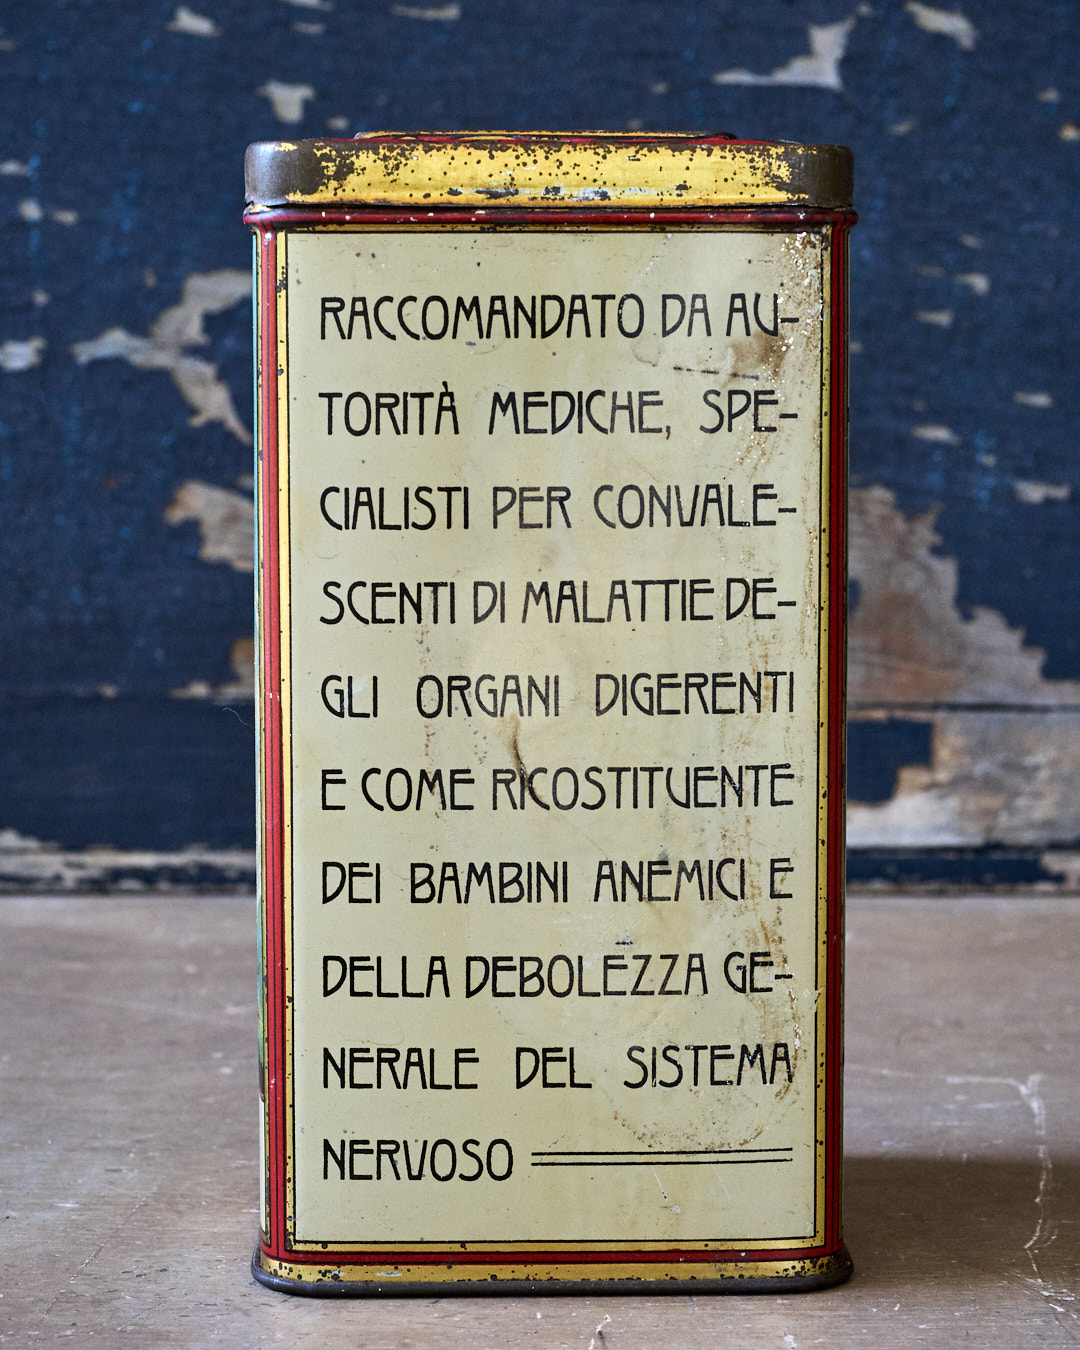 RACCOMANDATO DA AU-
TORITÀ MEDICHE, SPE-
CIALISTI PER CONVALE-
SCENTI DI MALATTIE DE-
GLI ORGANI DIGERENTI
E COME RICOSTITUENTE
DEI BAMBINI ANEMICI E
DELLA DEBOLEZZA GE-
NERALE DEL SISTEMA
NERVOSO